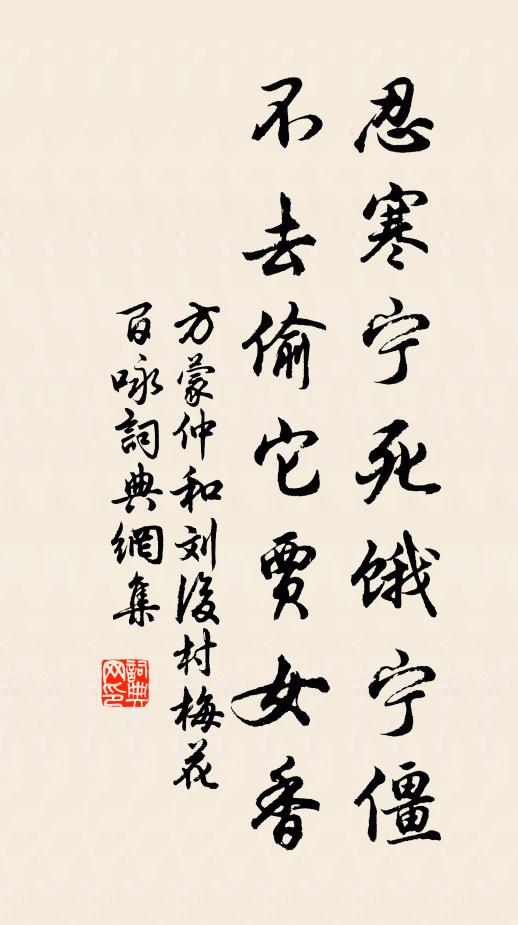 忍寒宁死饿宁僵
不去偷它贾女香
方蒙仲和刘後村梅花
百咏詞典網集
詞典网印